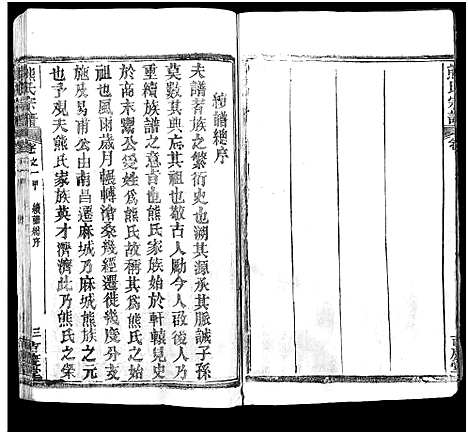 熊氏宗譜
卷
續譜總序
夫譜者族之繁衍史也溯其源承其脈誠子孫
莫數其典忘其祖也敬古人勵今人啟後人乃
重續族譜之意旨也熊氏家族始於軒轅見史
於商末鬻公受姓為熊氏故稱其為熊氏之第
祖也風雨歲月輾轉滄桑幾經遷徙幾度分支
施戍易甫公由南昌遷麻城乃麻城熊族之元
也予观夫熊氏家族英才濟濟此乃熊氏之榮
熊氏宗譜
卷之一
續譜總序
三